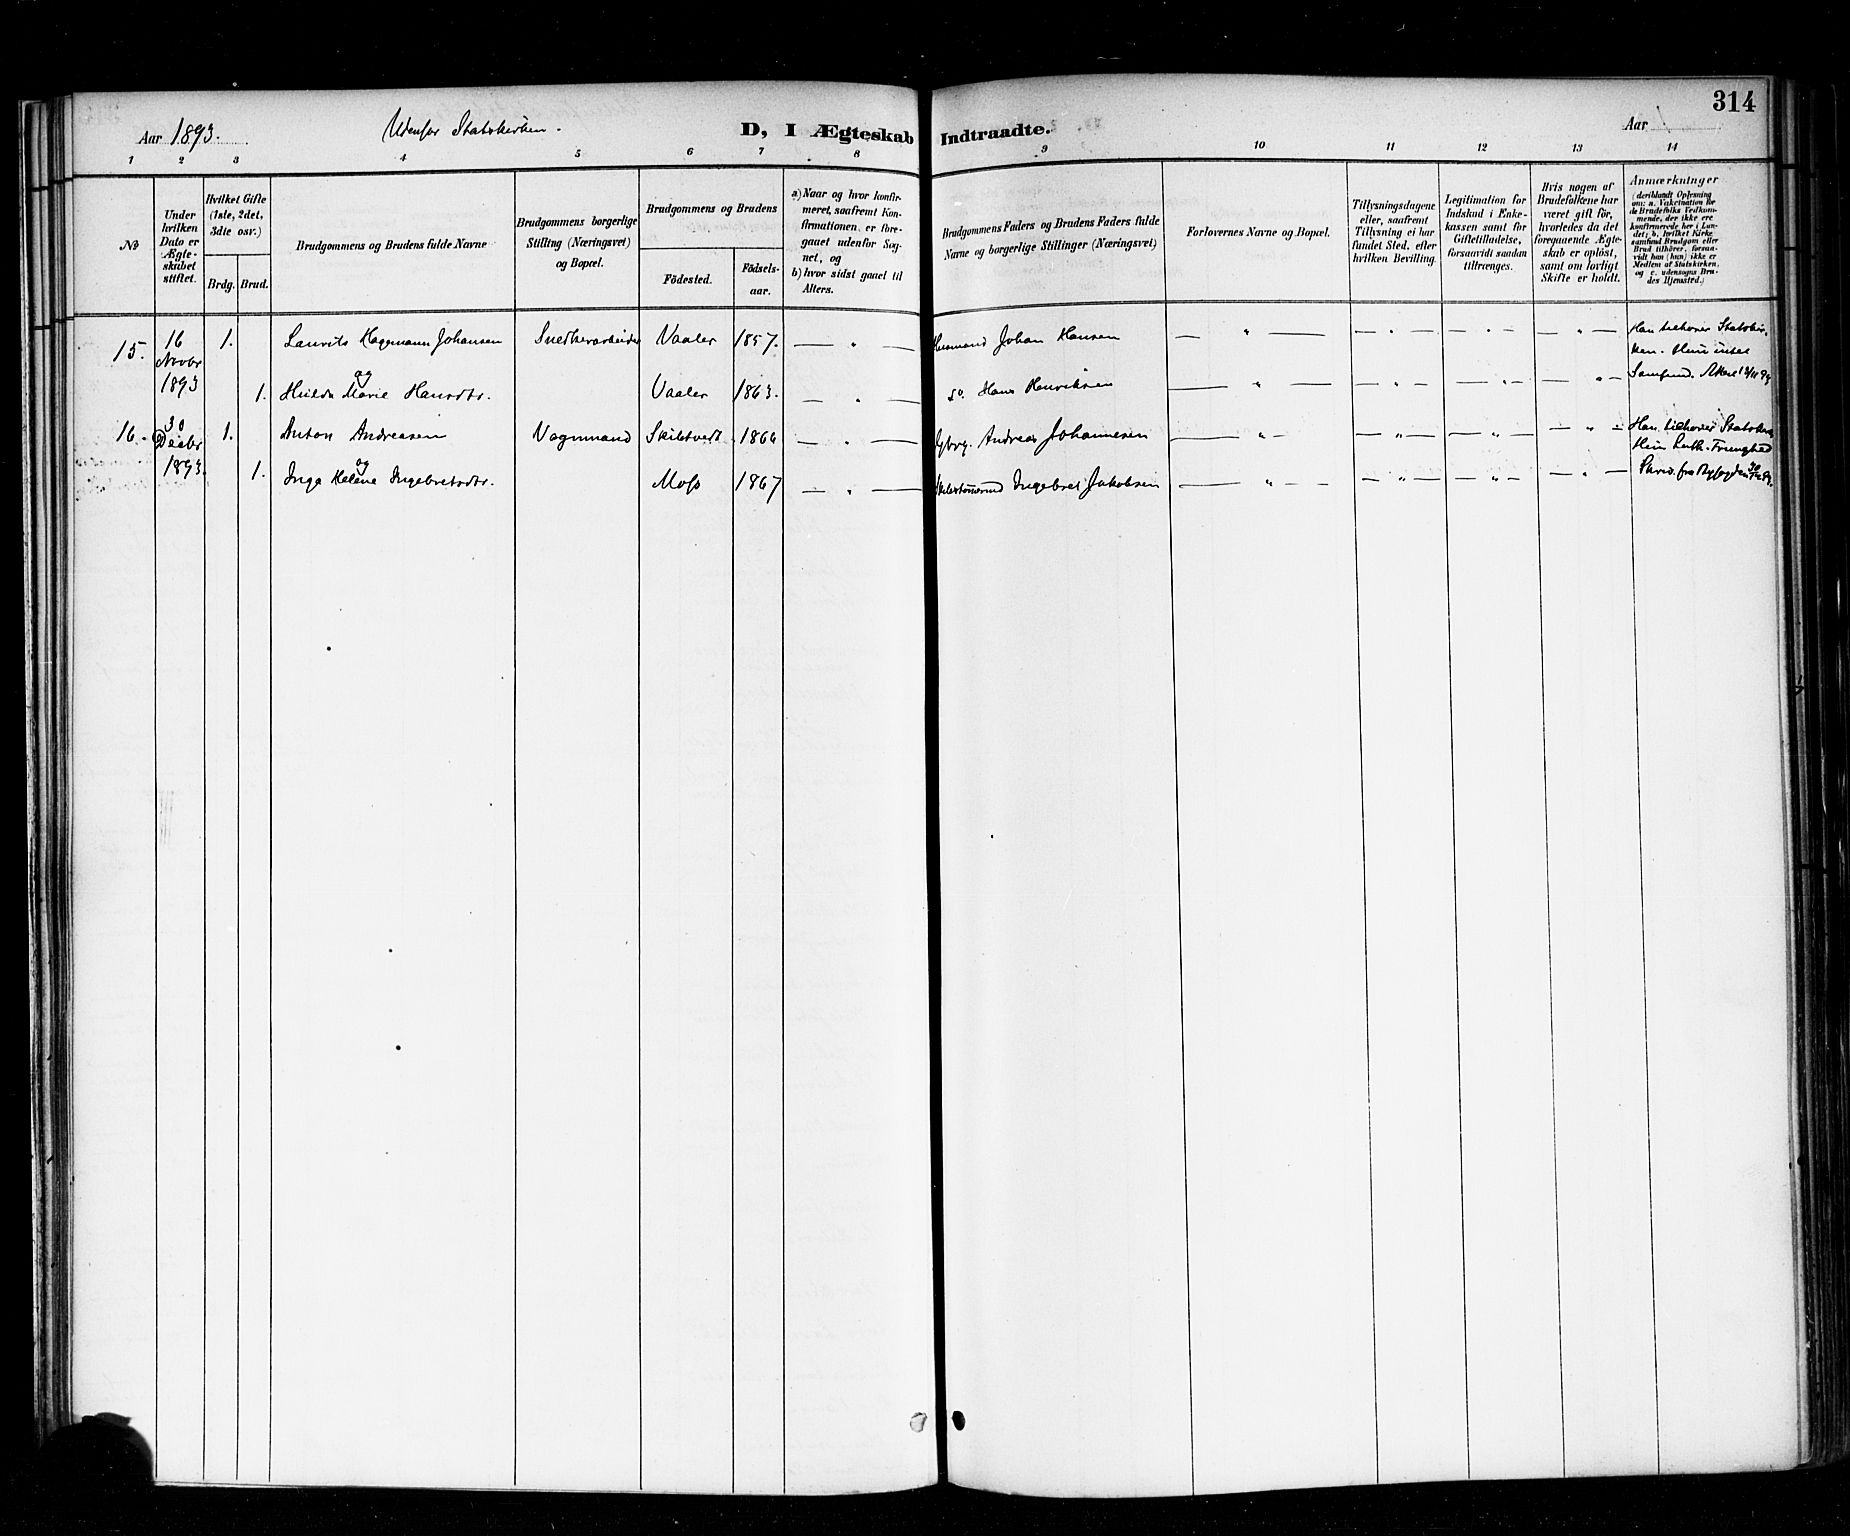 314
Aar 1893. Udenfor Statskirken. D, I Ægteskab Indtraadte. Aar
1 2 3 4 5 6 7 8 9 10 11 12 13 14
No
Under
hvilken
Dato er
Ægte-
skabet
stiftet.
Hvilket Gifte
(1ste, 2det,
3die osv.)
Brdg. Brud.
Brudgommens og Brudens fulde Navne
Brudgommens borgerlige
Stilling (Næringsvei)
og Bopæl.
Brudgommens og Brudens
Födested.
Födsels-
aar.
a) Naar og hvor konfir-
meret, saafremt Kon-
firmationen er fore-
gaaet udenfor Sog-
net, og
b) hvor sidst gaaet til
Alters.
Brudgommens Faders og Brudens Faders fulde
Navne og borgerlige Stillinger (Næringsvei)
Forlovernes Navne og Bopæl.
Tillysningsdagene
eller, saafremt
Tillysning ei har
fundet Sted, efter
hvilken Bevilling.
Legitimation for
Indskud i Enke-
kassen samt for
Giftetilladelse,
forsaavidt saadan
tiltrænges.
Hvis nogen af
Brudefolkene har
været gift för,
hvorledes da det
foregaaende Ægte-
skab er oplöst,
samt om lovligt
Skifte er holdt.
Anmærkninger
(deriblandt Oplysning
om: a. Vakcination for
de Brudefolks Vedkom-
mende, der ikke ere
konfirmerede her i Lan-
det; b. hvilket Kirke-
samfund Brudgom eller
Brud tilhörer, forsaa-
vidt han (hun) ikke er
Medlem af Statskirken,
og c. udensogns Bru-
des Hjemsted.)
15. 16 Novbr 1893 1. Laurits Hagemann Johansen Snedkerarbeider Vaaler 1857. — " — Husmand Johan Hansen — " — — " — — " — — " — Han tilhører Statskir-
ken. Hun intet
og
1. Hulda Marie Hansdtr. Vaaler 1863. — " — do. Hans Henriksen — " — — " — — " — — " — Samfund.
16. 30 Decbr 1893. 1. Anton Andreasen Vognmand Skibtvedt 1866 — " — Andreas Johannesen — " — — " — — " — — " — Han tilhører Statskir
Hun Luth. Frimenighed
og
1. Inga Helene Ingebretsdtr. Moss 1867 — " — Ingebret Jakobsen — " — — " — — " — — " — Skriv. fra Byfogden 30/12 93.